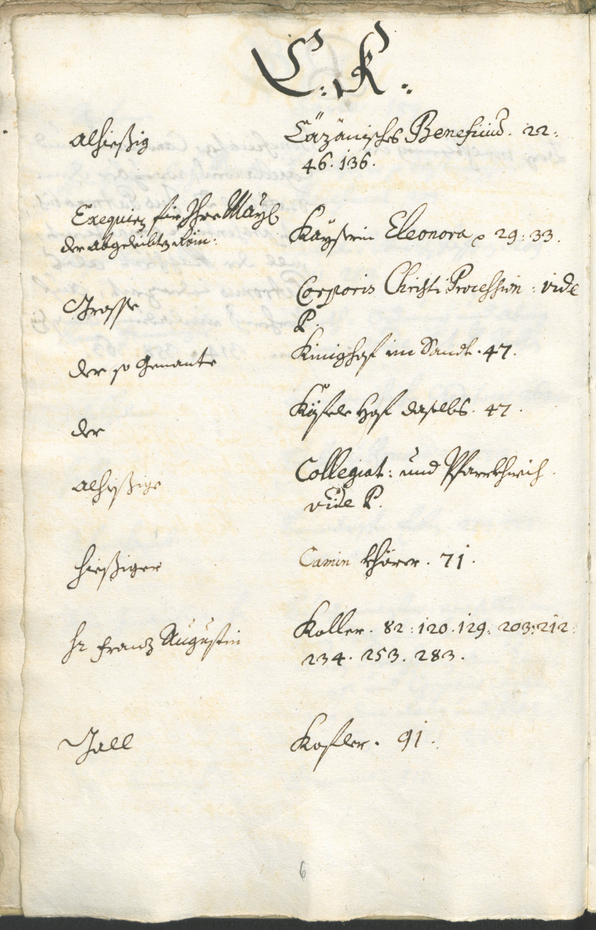 C: K:
alhießig Cäzänisches Beneficiũ. 22:
46. 136.
Exequien für Ihro Mayst
der abgeleibten Röm: Kayserin Eleonora p 29: 33.
Grosse Corporis Christi Procession: vide
P.
der so genante Kinighof im Sandt. 47.
der Hof daselbs. 47.
alhießige Collegiat: und Pfarrkhirch.
vide P.
hießiger Camin khörer. 71.
hr Franz Augustin Koller. 82: 120. 129. 203: 212:
234. 253. 283.
Kofler. 91.
6